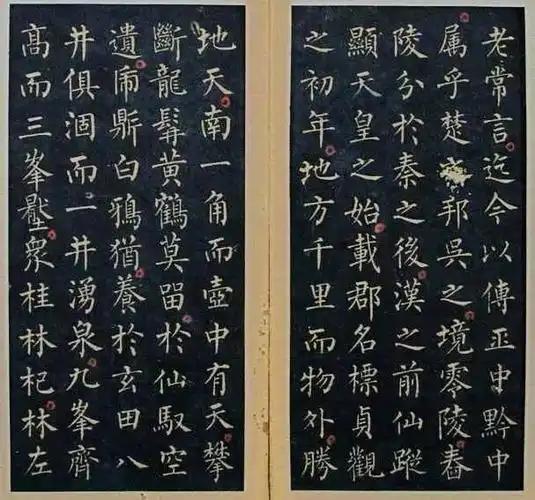 老常言迄今以傳中黔中
属乎楚邦吳之境零陵舂
陵分於秦之後漢之前仙蹤
顯天皇之始載郡名標貞觀
之初年地方千里而物外勝
地天南一角而壺中有天攀
斷龍髯黃鶴莫畱於仙馭空
遺鼎白鴉猶養於玄田八
井俱涸而一井湧泉九峯齊
髙而三峯壓衆桂林杞林左